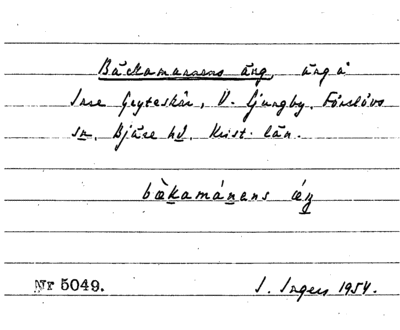 Bäckamannens äng, äng å
Inre Gryteskär, V. Ljungby, Förslövs
sn, Bjäre hd, Krist. län.
bæ̀kamánens ǽŋ
Nr 5049.
I. Ingers 1954.